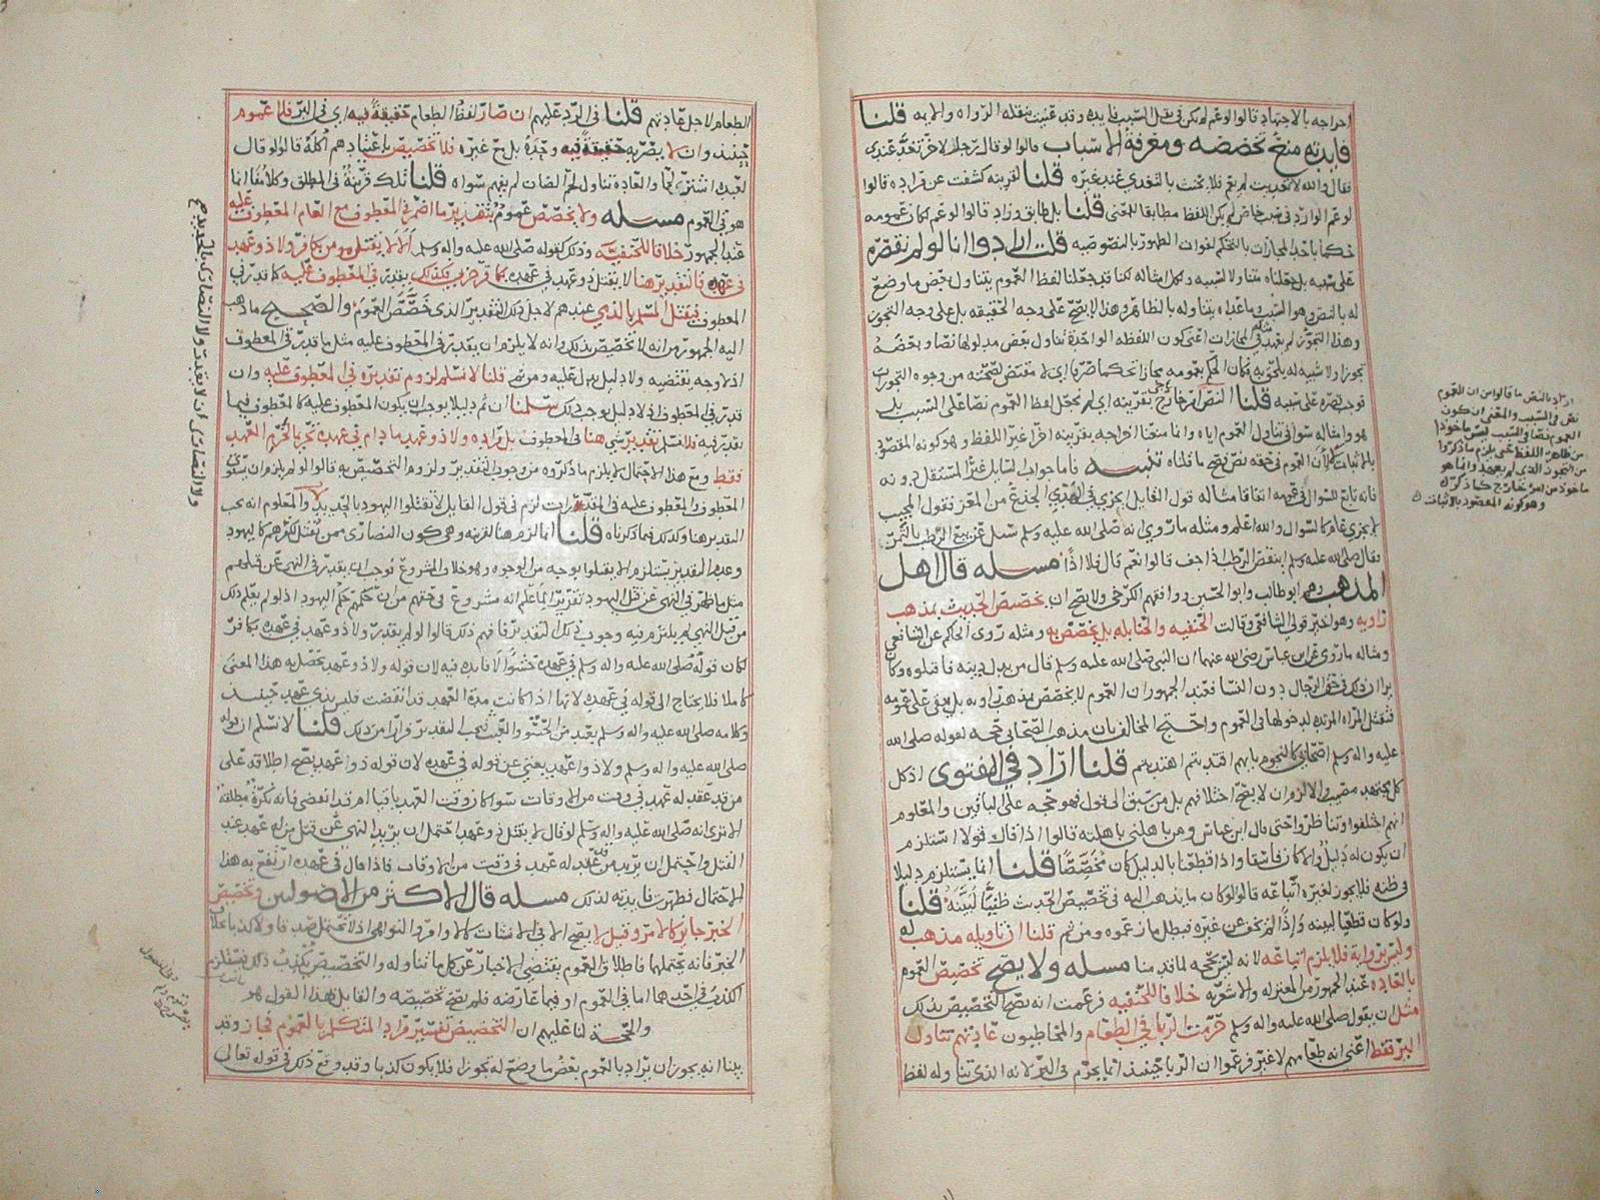 اخراجه بالاجتهاد قالوا لو عم لم يكن في نقل السبب فايده وقد عنيت بنقله الرواه والامه قلنا
فايدته منع تخصيصه ومعرفة الاسباب قالوا لو قال رجل لاخر تغد عندي
فقال والله لا تغديت لم يعم فلا يحنث بالتغدي عند غيره قلنا لقرينه كشفت عن مراده قالوا
لو عم الوارد في سبب خاص لم يكن اللفظ مطابقا للمعنى قلنا بل طابق وزاد قالوا لو عم لكان عمومه
حكما باحد المجازات بالتحكم لفوات الظهور بالنصوصيه قلت ارادوا انا لو لم نقصره
على سببه بل جعلناه متناولا لسببه ولكل امثاله لكنا قد جعلنا لفظ العموم يتناول بعض ما وضع
له بالنص وهو السبب وما عداه يتناوله بالظاهر وهذا لا يصح على وجه الحقيقه بل على وجه التجوز
وهذا التجوز لم يعهد في المجازات اعني كون اللفظه الواحدة تتناول بعض مدلولها نصا وبعضه
تجوزا ولا شبيه له يلحق به فكان الحكم بعمومه مجازا تحكما صرفا اي لا مقتضي لصحته من وجوه التجوزات
فوجب قصره على سببه قلنا النص امر خارجي بقرينه اي لم نجعل لفظ العموم نصا على السبب بل
هو وامثاله سوا في تناول العموم اياه وانما منعنا اخراجه بقرينه امر غير اللفظ وهو كونه المقصود
بالاثبات فكان العموم في حقه نص فصح ما قلناه تنبيه فاما جواب السايل غير المستقل دونه
فانه تابع للسوال في عمومه اتفاقا مثاله قول القايل ايجزي في الهدي الجذع من المعز نقول المجيب
لا يجزي عام كالسوال والله اعلم ومثله ما روي انه صلى الله عليه وسلم سئل عن بيع الرطب بالتمر
فقال صلى الله عليه وسلم اينقص الرطب اذا جف قالوا نعم قال فلا اذًا مسله قال اهل
المذهب وهم ابو طالب وابو الحسين ووافقهم الكرخي ولا يصح ان يخصص الحديث بمذهب
راويه وهو اخير قولي الشافعي وقالت الحنفيه والحنابله بل يخصص به ومثله روى الحاكم عن الشافعي
ومثاله ما روي عن ابن عباس رضي الله عنهما ان النبي صلى الله عليه وسلم قال من بدل دينه فاقتلوه وكان
يرا ان ذلك في حق الرجال دون النسا فعند الجمهور ان العموم لا يخصص بمذهب راويه بل يبقى على عمومه
فتقتل المراه المرتده لدخولها في العموم واحتج المخالف بان مذهب الصحابي حجه لقوله صلى الله
عليه واله وسلم اصحابي كالنجوم بايهم اقتديتم اهتديتم قلنا اراد في الفتوى اذ كل
كل مجتهد مصيب والا لزم ان لا يصح اختلافهم بل من سبق الى قول فهو حجه على الباقين والمعلوم
انهم اختلفوا وتناظروا حتى قال ابن عباس ومن باهلني باهلته قالوا اذا قال قولا استلزم
ان يكون له دليل والا كان فاسقا واذا قطعنا بالدليل كان مخصصًا قلنا انما يستلزم دليلا
في ظنه فلا يجوز لغيره اتباعه قالوا لو كان ما يذهب اليه في تخصيص الحديث ظنيا لبينه قلنا
ولو كان قطعيا لبينه وايضًا لم يخف عن غيره فبطل ما زعموه ومن ثم قلنا ان تاويله مذهب له
وليس برواية فلا يلزم اتباعه لانه ليس بحجه لما قدمنا مسله ولا يصح تخصيص العموم
بالعاده عند الجمهور من المعتزله والاشعريه خلافا للحنفيه فزعمت انه يصح التخصيص بذلك
مثل ان يقول صلى الله عليه واله وسلم حرمت الربا في الطعام والمخاطبون عادتهم تناول
البر فقط اعني انه طعامهم لا غير فزعموا ان الربا حينئذ انما يحرم في البر لانه الذي تناوله لفظ
اراد بالنص ما قالوا من ان العموم
نص في السبب والمعنى ان كون
العموم نصا في السبب ليس ماخوذا
من ظاهر اللفظ حتى يلزم ما ذكروا
من التجوز الذي لم يعهد وانما هو
ماخوذ من امر خارج كما ذكرت
وهو كونه المقصود بالاثبات
الطعام لاجل عادتهم قلنا في الرد عليهم ان صار لفظ الطعام حقيقةً فيه اي في البر فلا عموم
حينئذ وان لا يصر به حقيقةً فيه وحده بل مع غيره فلا تخصيص باعتيادهم اكله قالوا لو قال
لعبده اشتر لي لحما والعادة تناول لحم الضان لم يفهم سواه قلنا تلك قرينة في المطلق وكلامنا انما
هو في العموم مسله ولا يخصص عموم بتقدير ما اضمر في المعطوف مع العام المعطوف عليه
عند الجمهور خلافا للحنفيه وذلك كقوله صلى الله عليه واله وسلم الا لا يقتل مومن بكافر ولا ذو عهد
في عهده فالتقدير هنا لا يقتل ذو عهد في عهده بكافر حربي فكذلك يقدر في المعطوف عليه كما قدر في
المعطوف فيقتل المسلم بالذمي عندهم لاجل ذلك التقدير الذي خصص العموم والصحيح ما ذهب
اليه الجمهور من انه لا تخصيص بذلك وانه لا يلزم ان يقدر في المعطوف عليه مثل ما قدر في المعطوف
اذ لا وجه يقتضيه ولا دليل يدل عليه ومن ثم قلنا لا نسلم لزوم تقديره في المعطوف عليه وان
قدر في المعطوف اذ لا دليل يوجب ذلك سلمنا ان ثم دليلا يوجب ان يكون المعطوف عليه كالمعطوف فيما
يقدر فيه فلا نسلم تقدير شي هنا في المعطوف بل مراده ولا ذو عهد ما دام في عهده تحريما لحرم العهد
فقط ومع هذا الاحتمال لا يلزم ما ذكروه من وجود التقدير ولزوم التخصيص به قالوا لو لم يلزم ان يستوي
المعطوف والمعطوف عليه في المقدرات لزم في قول القايل لا تقتلوا اليهود بالحديد والمعلوم انه يجب
التقدير هنا وكذلك فيما ذكرناه قلنا انما لزم هنا لقرينه وهي كون النصارى ممن تقتل لكفرهم كاليهود
وعدم التقدير يستلزم الا يقتلوا بوجه من الوجوه وهو خلاف المشروع فوجب ان يقدر في النهي عن قتلهم
مثل ما ظهر في النهي عن قتل اليهود تقريرًا لما علم انه مشروع في حقهم من ان حكمهم حكم اليهود اذ لو لم يعلم ذلك
من قبل النهي لم يلزم فيه وجوب ذلك التقدير فافهم ذلك قالوا لو لم يقدر ولا ذو عهد في عهده بكافر
لكان قوله صلى الله عليه واله وسلم في عهده حشوًا لا فايده فيه لان قوله ولا ذو عهد تحصل به هذا المعنى
كاملا فلا يحتاج الى قوله في عهده لانها اذا كانت مدة العهد قد انقضت فليس بذي عهد حينئذ
وكلامه صلى الله عليه واله وسلم يبعد من الحشو والعبث فيجب التقدير فرارا من ذلك قلنا لا نسلم ان قوله
صلى الله عليه واله وسلم ولا ذو عهد يغني عن قوله في عهده لان قوله ذو عهد يصح اطلاقه على
من قد عقد له عهد في وقت من الاوقات سوا كان وقت العهد باقيا ام قد انقضى فانه نكرة مطلقة
الا ترى انه صلى الله عليه واله وسلم لو قال لا يقتل ذو عهد احتمل ان يريد النهي عن قتل من له عهد عند
القتل واحتمل ان يريد من قد عقد له عهد في وقت من الاوقات فاذا قال في عهده ارتفع به هذا
الاحتمال فظهرت فايدته لذلك مسله قال الاكثر من الاصولين وتخصيص
الخبر جايز كالامر وقيل لا يصح الا في الانشات كالاوامر والنواهي اذ لا تحتمل صدقا ولا كذبا بخلاف
الخبر فانه يحتملها فاطلاق العموم يقتضي الاخبار عن كل ما تناوله والتخصيص يكذب ذلك فيستلزم
الكذب في احدهما اما في العموم او فيما عارضه فلم يصح تخصيصه والقايل بهذا القول هو
والحجة لنا عليهم ان التخصيص تفسير مراد المتكلم بالعموم فجاز وقد
بينا انه يجوز ان يراد بالعموم بعض ما وضع له تجوزا فلا يكون كذبا وقد وقع ذلك في قوله تعالى
ولا النصارى ان لا يقتل ولا النصارى بالحديد